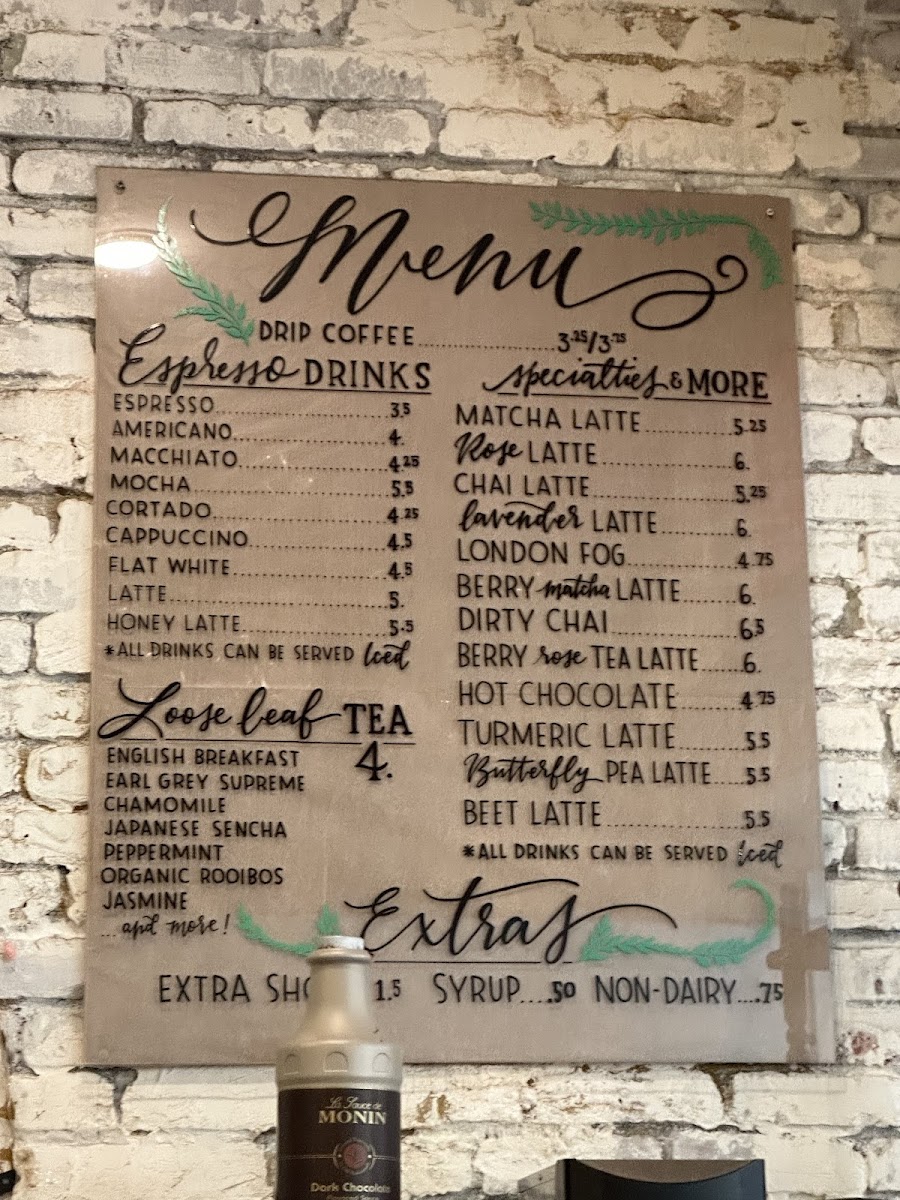 Menu
DRIP COFFEE....................3.25/3.75
Espresso DRINKS
ESPRESSO....................3.5
AMERICANO....................4.
MACCHIATO....................4.25
MOCHA....................5.5
CORTADO....................4.25
CAPPUCCINO....................4.5
FLAT WHITE....................4.5
LATTE....................5.
HONEY LATTE....................5.5
*ALL DRINKS CAN BE SERVED Iced
Loose leaf TEA
4.
ENGLISH BREAKFAST
EARL GREY SUPREME
CHAMOMILE
JAPANESE SENCHA
PEPPERMINT
ORGANIC ROOIBOS
JASMINE
...and more!
specialties & MORE
MATCHA LATTE............5.25
Rose LATTE....................6.
CHAI LATTE....................5.25
lavender LATTE............6.
LONDON FOG....................4.75
BERRY matcha LATTE.......6.
DIRTY CHAI....................6.5
BERRY rose TEA LATTE......6.
HOT CHOCOLATE.........4.75
TURMERIC LATTE.........5.5
Butterfly PEA LATTE....5.5
BEET LATTE....................5.5
*ALL DRINKS CAN BE SERVED iced
Extras
EXTRA SHO 1.5 SYRUP....50 NON-DAIRY....75
La Sauce de
MONIN
Dark Chocolate